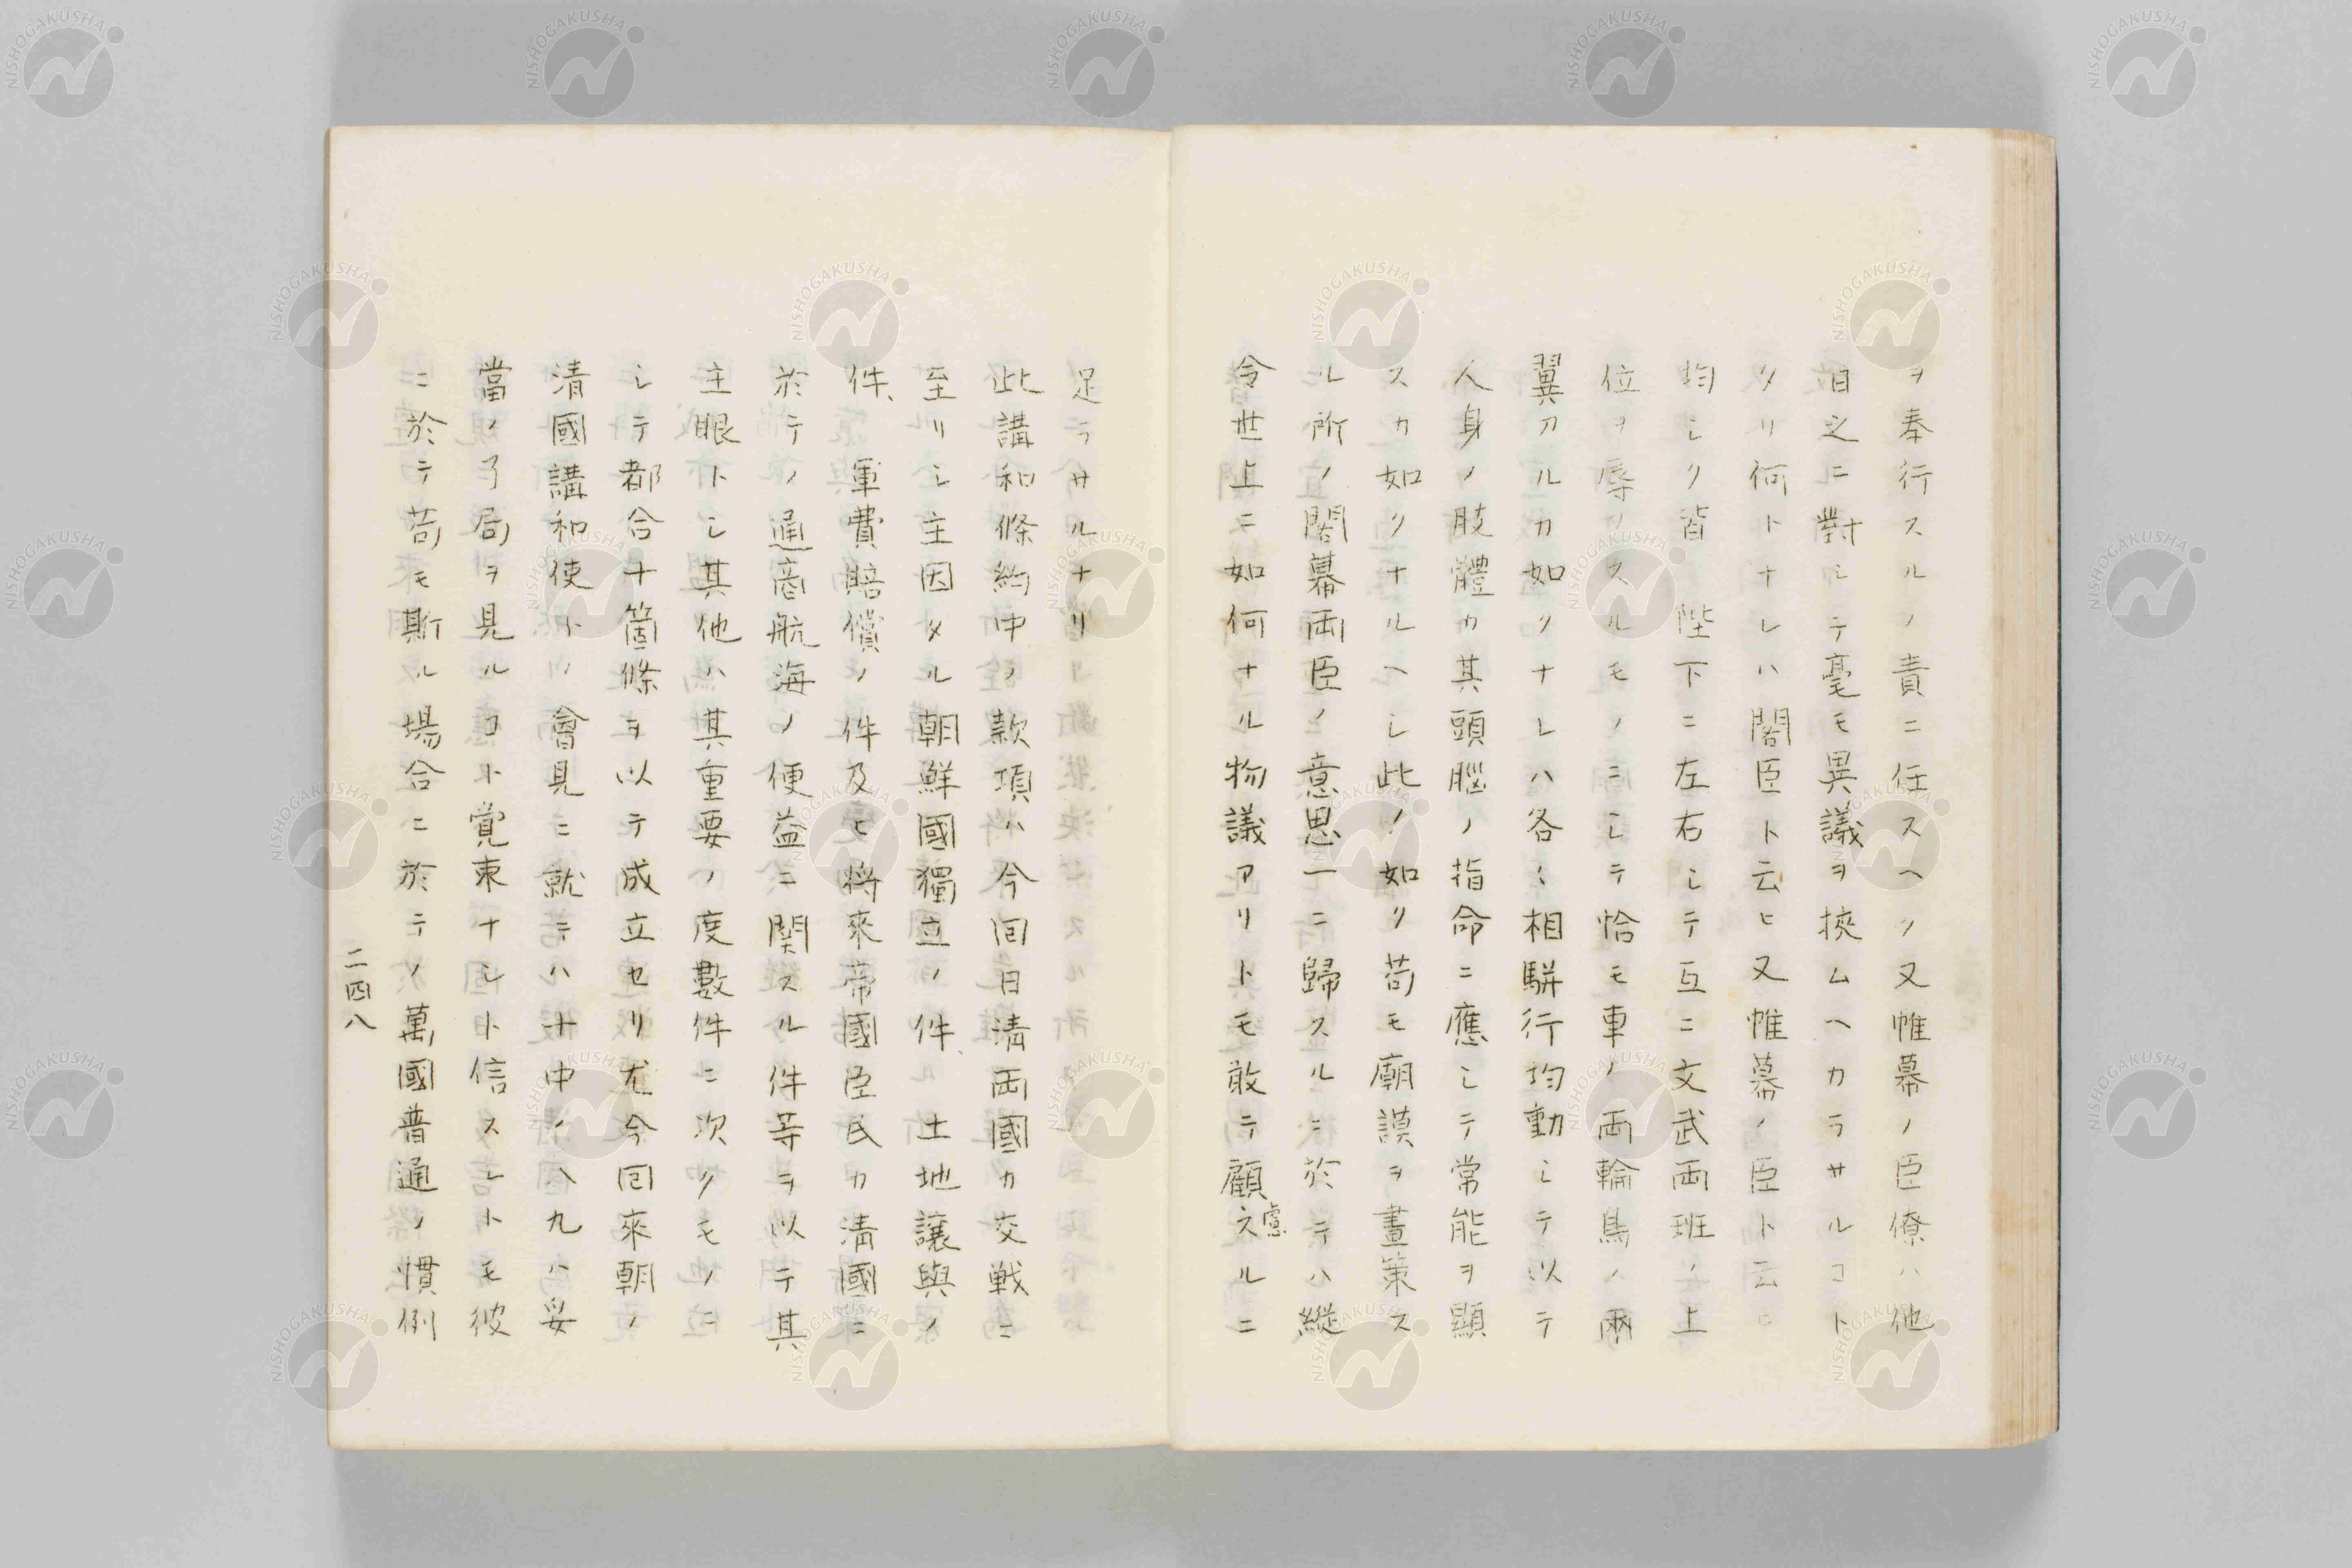 ヲ奉行スルノ責ニ任スヘク又帷幕ノ臣僚ハ他
日之ニ對シテ毫モ異議ヲ挾ムヘカラサルコト
タリ何トナレハ閣臣ト云ヒ又帷幕ノ臣ト云ヒ
均シク皆 陛下ニ左右シテ互ニ文武両班ノ上
位ヲ辱クスルモノニシテ恰モ車ノ両輪鳥ノ兩
翼アルカ如クナレハ各〻相駢行均動シテ以テ
人身ノ肢體カ其頭腦ノ指命ニ應シテ常能ヲ顯
スカ如クナルヘシ此ノ如ク苟モ廟謨ヲ畫策ス
ル所ノ閣幕両臣ノ意思一ニ歸スルニ於テハ縦
令世上ニ如何ナル物議アリトモ敢テ顧慮スルニ
足ラサルナリ
此講和條約中ノ款項ハ今回日清両國カ交戦ニ
至リシ主因タル朝鮮國獨立ノ件、土地讓與ノ
件、軍費賠償ノ件及ヒ将來帝國臣民カ清國ニ
於テノ通商航海ノ便益ニ関スル件等ヲ以テ其
主眼トシ其他ハ其重要ノ度數件ニ次クモノニ
シテ都合十箇條ヲ以テ成立セリ尤今回來朝ノ
清國講和使トノ會見ニ就テハ十中ノ八九ハ妥
當ノ了局ヲ見ルコト覚束ナシト信スレトモ彼
ニ於テ苟モ斯ル場合ニ於テノ萬國普通ノ慣例
二四八
NISHOGAKUSHA